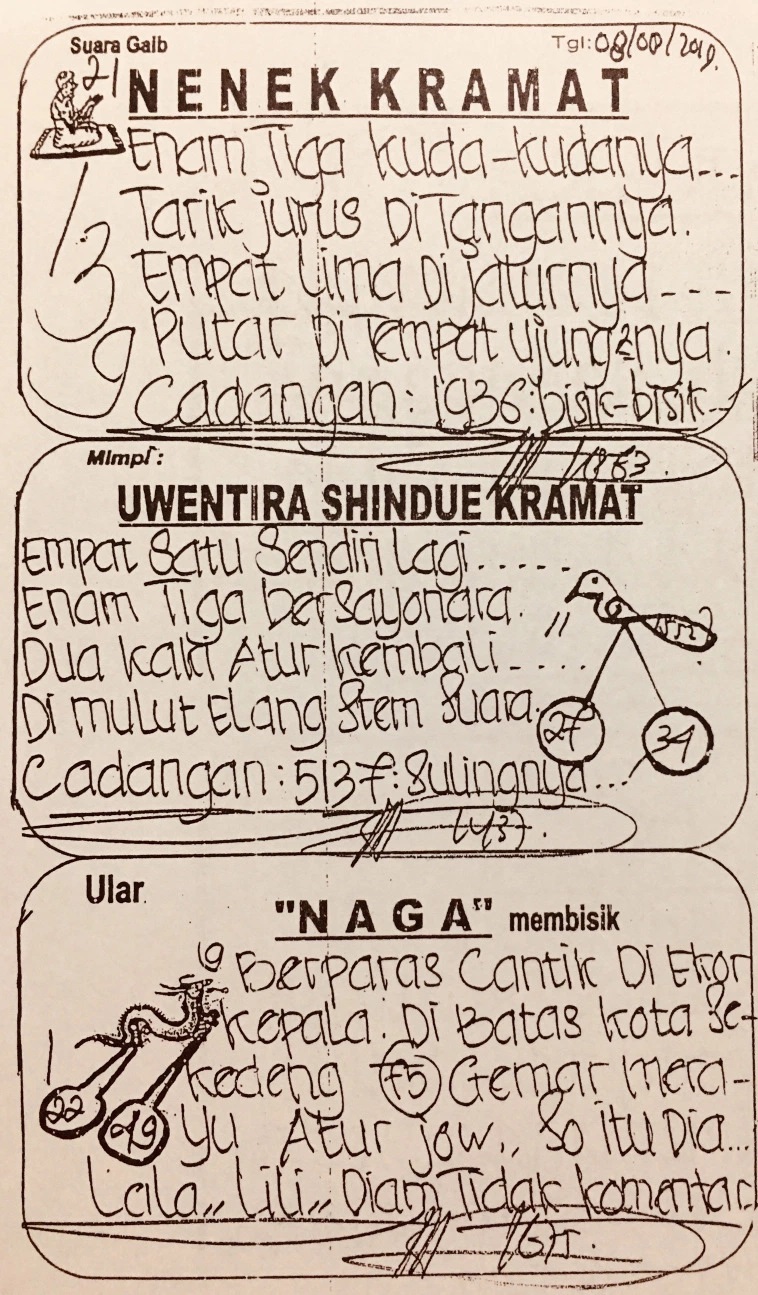 Suara Gaib
Tgl: 08/08/2019.
21 NENEK KRAMAT
Enam Tiga kuda-kudanya...
Tarik jurus DiTangannya.
1
3
Empat Lima Di jaturnya ---
9
Putar DiTempat ujung2nya.
Cadangan: 1936: bisik-bisik--
Mimpi:
UWENTIRA SHINDUE KRAMAT
Empat Satu Sendiri Lagi.....
Enam Tiga berSayonara.
Dua kaki Atur kembali.....
Di mulut Elang Stem Suara.
27
34
Cadangan: 5137: Sulingnya...
Ular
"NAGA" membisik
19
Berparas Cantik Di Ekor
kepala. Di Batas kota Se-
kedeng 75 Gemar mera-
22
49
yu Atur jow.. So itu Dia...
Lala,, Lili,, Diam Tidak komentar